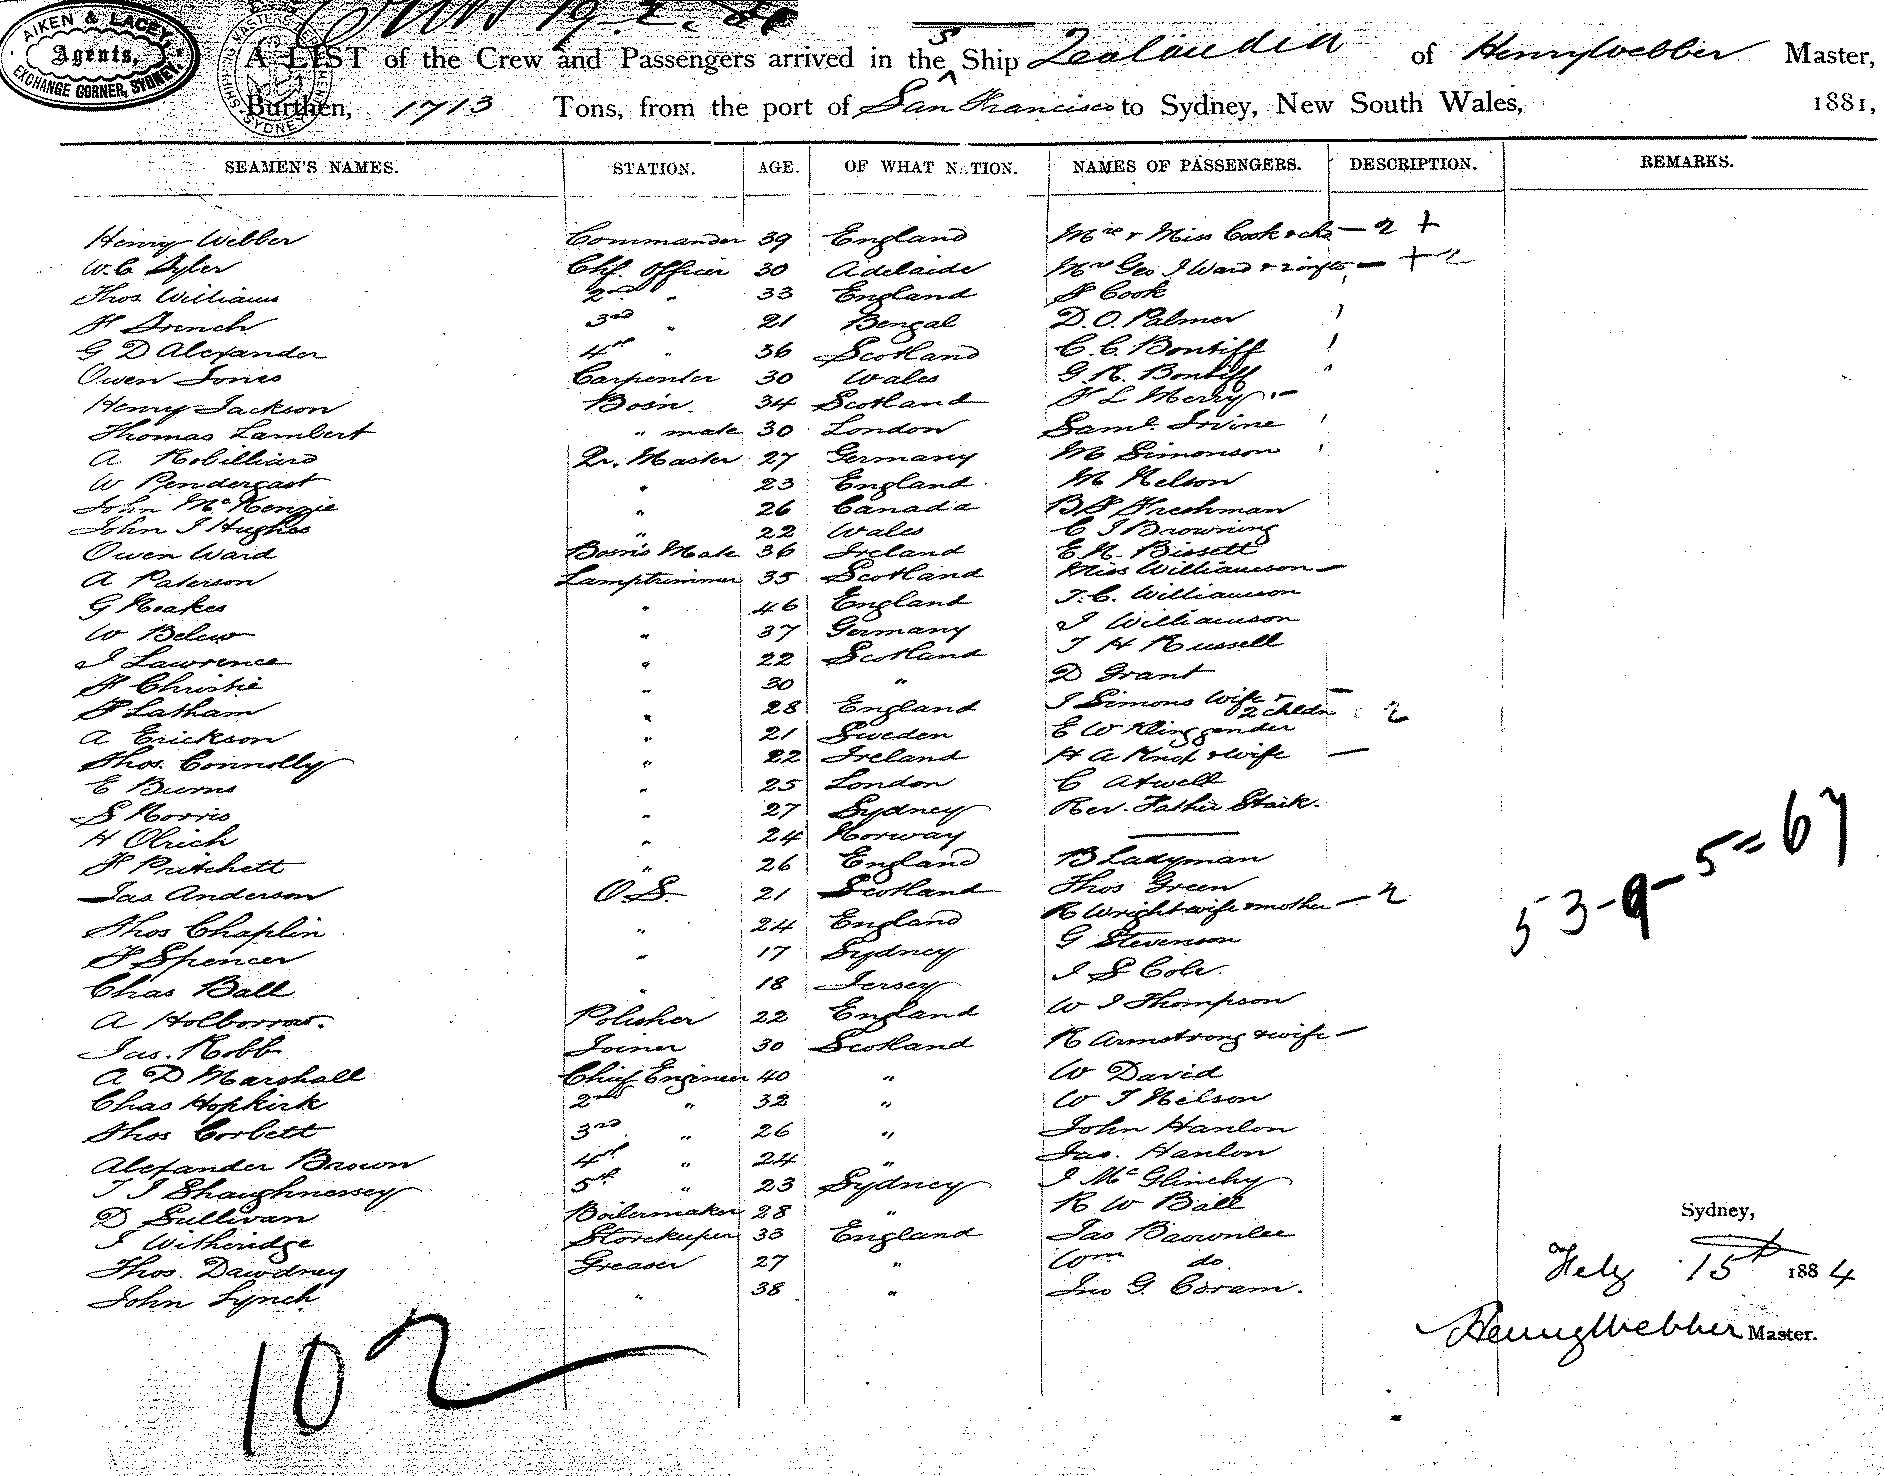 AIKEN & LACEY,
Agents,
EXCHANGE CORNER, SYDNEY.
A LIST of the Crew and Passengers arrived in the S Ship Zealandia of Henry Webber Master,
Burthen, 1713 Tons, from the port of San Francisco to Sydney, New South Wales, 1881,
SEAMEN'S NAMES. STATION. AGE. OF WHAT NATION. NAMES OF PASSENGERS. DESCRIPTION. REMARKS.
Henry Webber Commander 39 England Mrs & Miss Cook & ch - 2 +
W. C. Chf. Officer 30 Adelaide Mrs Geo J Ward & 2 infts - + 2
Thos. Williams 2nd " 33 England F Cook
F French 3rd " 21 Bengal D. O. Palmer
G D Alexander 4th " 36 Scotland C. C. Bontiff
Owen Jones Carpenter 30 Wales G R. Bontiff
Henry Jackson Bosn. 34 Scotland F L Merry
Thomas Lambert " mate 30 London Saml. Irvine
A Robilliard Qr. Master 27 Germany M Simonson
W Pendergast " 23 England M Nelson
John McKenzie " 26 Canada B F Freshman
John J Hughes " 22 Wales C J Browning
Owen Ward Bosn's Mate 36 Ireland E N. Bissett
A Paterson Lamptrimmer 35 Scotland Miss Williamson -
G Noakes " 46 England T. C. Williamson
W Belew " 37 Germany J Williamson
J Lawrence " 22 Scotland T H Russell
F Christie " 30 " D Grant
F Latham " 28 England J Simons Wife & 2 childn - 2
A Erickson " 21 Sweden E W Klinggender
Thos. Connolly " 22 Ireland H A Knof & wife -
E Burns " 25 London C Atwell
S Norris " 27 Sydney Rev. Father Staik.
H Olrich " 24 Norway
F Pritchett " 26 England B Ladyman
Jas Anderson O.S. 21 Scotland Thos Green
Thos Chaplin " 24 England R Wright wife & mother - 2
F Spencer " 17 Sydney G Stevenson
Chas Ball " 18 Jersey J S Cole
A Holborrow. Polisher 22 England W J Thompson
Jas. Robb Joiner 30 Scotland R Armstrong & wife -
A D Marshall Chief Engineer 40 " W David
Chas Hopkirk 2nd " 32 " W J Nelson
Thos Corbett 3rd " 26 " John Hanlon
Alexander Brown 4th " 24 " Jas. Hanlon
T J Shaughnessey 5th " 23 Sydney J McGlinchy
D Sullivan Boilermaker 28 " R W Ball
J Witheridge Storekeeper 33 England Jas Brownlee
Thos. Dawdney Greaser 27 " Wm do
John Lynch " 38 " Jno G. Coram.
53-9-5=67
Sydney,
Feby 15th 1884
Henry Webber Master.
102